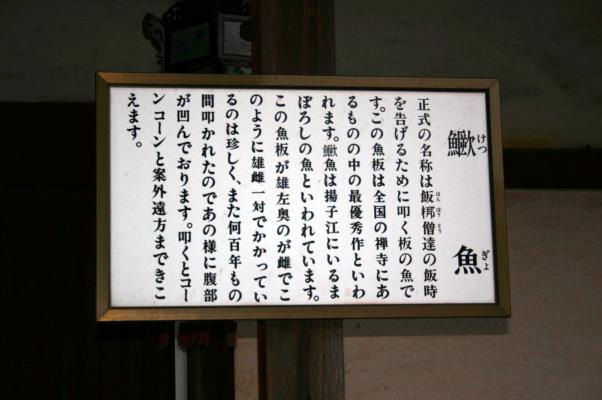 鱖魚
けつぎょ
正式の名称は飯梆僧達の飯時
はんぽう
を告げるために叩く板の魚で
す。この魚板は全国の禅寺にあ
るものの中の最優秀作といわ
れます。鱖魚は揚子江にいるま
ぼろしの魚といわれています。
この魚板が雄左奥のが雌でこ
のように雄雌一対でかかってい
るのは珍しく、また何百年もの
間叩かれたのであの様に腹部
が凹んでおります。叩くとコー
ンコーンと案外遠方まできこ
えます。